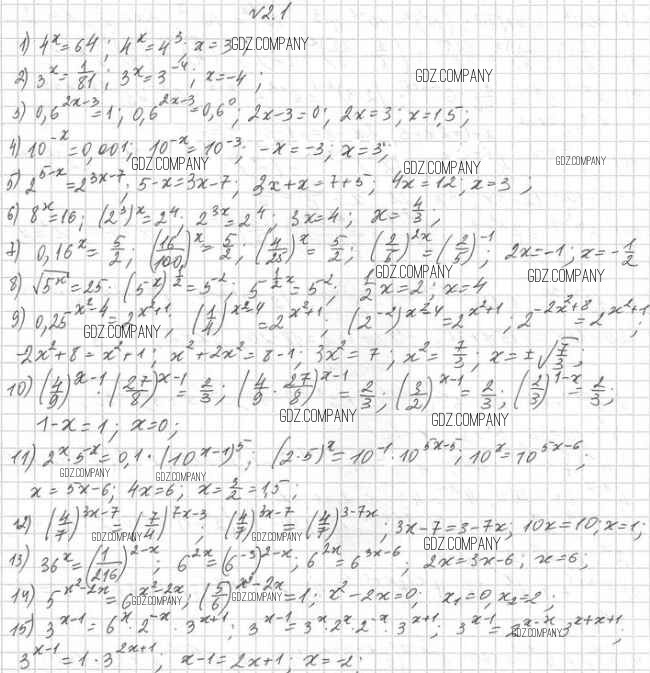 №2.1
1) 4^x = 64; 4^x = 4^3; x = 3; GDZ.COMPANY
2) 3^x = 1/81; 3^x = 3^-4; x = -4; GDZ.COMPANY
3) 0,6^(2x-3) = 1; 0,6^(2x-3) = 0,6^0; 2x-3=0; 2x=3; x=1,5;
4) 10^-x = 0,001; 10^-x = 10^-3; -x = -3; x = 3;
GDZ.COMPANY GDZ.COMPANY GDZ.COMPANY
5) 2^(5-x) = 2^(3x-7); 5-x = 3x-7; 3x+x = 7+5; 4x = 12; x = 3;
6) 8^x = 16; (2^3)^x = 2^4; 2^(3x) = 2^4; 3x = 4; x = 4/3;
7) 0,16^x = 5/2; (16/100)^x = 5/2; (4/25)^x = 5/2; (2/5)^(2x) = (2/5)^-1; 2x = -1; x = -1/2
GDZ.COMPANY GDZ.COMPANY
8) √(5^x) = 25; (5^x)^(1/2) = 5^2; 5^(1/2 x) = 5^2; 1/2 x = 2; x = 4
9) 0,25^(x²-4) = 2^(x²+1); (1/4)^(x²-4) = 2^(x²+1); (2^-2)^(x²-4) = 2^(x²+1); 2^(-2x²+8) = 2^(x²+1);
GDZ.COMPANY
-2x²+8 = x²+1; x²+2x² = 8-1; 3x² = 7; x² = 7/3; x = ±√(7/3);
10) (4/9)^(x-1) · (27/8)^(x-1) = 2/3; (4/9 · 27/8)^(x-1) = 2/3; (3/2)^(x-1) = 2/3; (2/3)^(1-x) = 2/3;
GDZ.COMPANY GDZ.COMPANY
1-x = 1; x = 0;
11) 2^x · 5^x = 0,1 · (10^(x-1))^5; (2·5)^x = 10^-1 · 10^(5x-5); 10^x = 10^(5x-6);
GDZ.COMPANY GDZ.COMPANY
x = 5x-6; 4x = 6; x = 3/2 = 1,5;
12) (4/7)^(3x-7) = (7/4)^(7x-3); (4/7)^(3x-7) = (4/7)^(3-7x); 3x-7 = 3-7x; 10x = 10; x = 1;
GDZ.COMPANY GDZ.COMPANY GDZ.COMPANY
13) 36^x = (1/216)^(2-x); 6^(2x) = (6^-3)^(2-x); 6^(2x) = 6^(3x-6); 2x = 3x-6; x = 6;
14) 5^(x²-2x) = 6^(x²-2x); (5/6)^(x²-2x) = 1; x²-2x = 0; x₁ = 0, x₂ = 2;
GDZ.COMPANY GDZ.COMPANY
15) 3^(x-1) = 6^x · 2^-x · 3^(x+1); 3^(x-1) = 3^x · 2^x · 2^-x · 3^(x+1); 3^(x-1) = 2^(x-x) · 3^(x+x+1);
GDZ.COMPANY
3^(x-1) = 1 · 3^(2x+1); x-1 = 2x+1; x = -2;